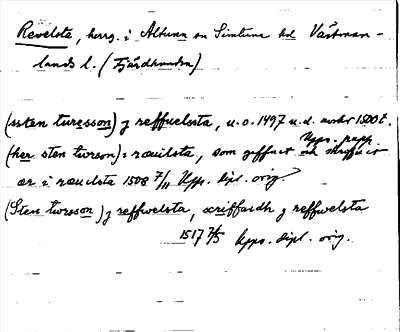 Revelsta, herrg. i Altuna sn Simtuna hd Västman-
lands l. (Fjärdhundra)
(ssten turesson) j reffuelssta, u.o. 1497 u.d. avskr 1500 t.
Upps. papp.
(her sten tureson) i ræuilsta, som geffuet och skrifuit
ær i ræuelsta 1508 7/11 Upps. dipl. orig.
(Sten turesson) j reffwelsta, scriffardh j reffwelsta
1517 7/5 Upps. dipl. orig.